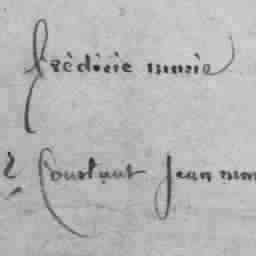 frédéric marie
2 Constant Jean